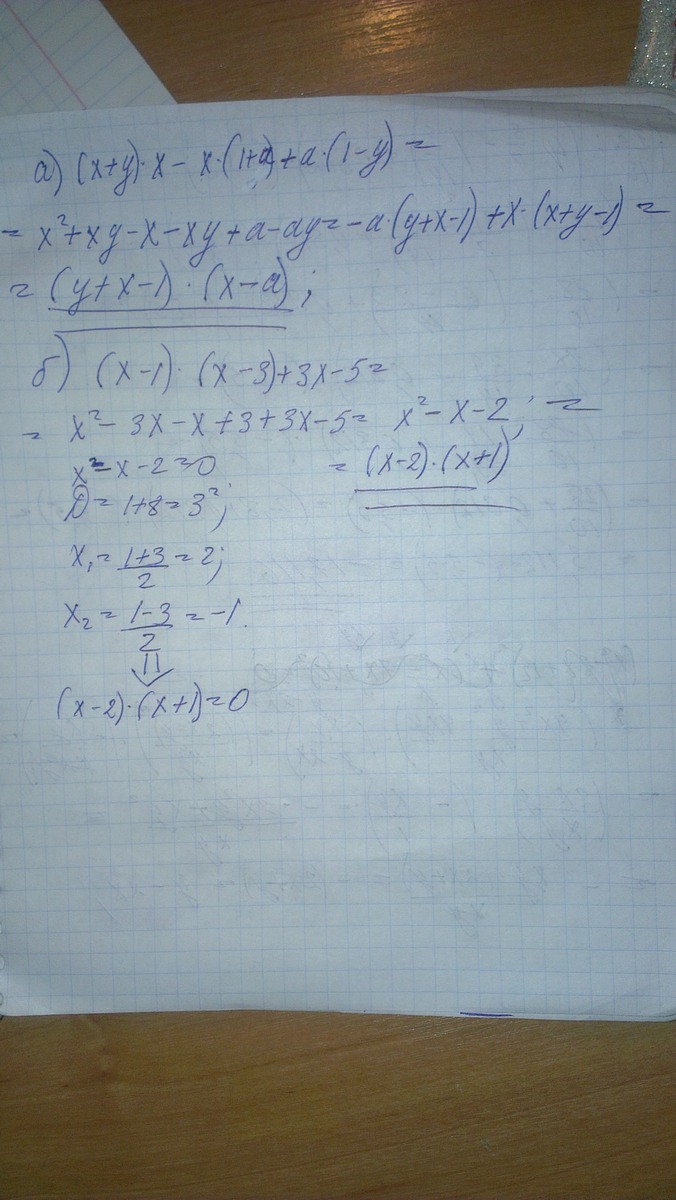 а) (x+y)·x − x·(1+a)+a·(1−y) =
= x²+xy−x−xy+a−ay=−a·(y+x−1)+x·(x+y−1) =
= (y+x−1)·(x−a);
б) (x−1)·(x−3)+3x−5=
= x²−3x−x+3+3x−5= x²−x−2; =
x²−x−2=0
= (x−2)·(x+1)
D=1+8=3²;
x₁=1+3/2=2;
x₂=1−3/2=−1.
⇓
(x−2)·(x+1)=0